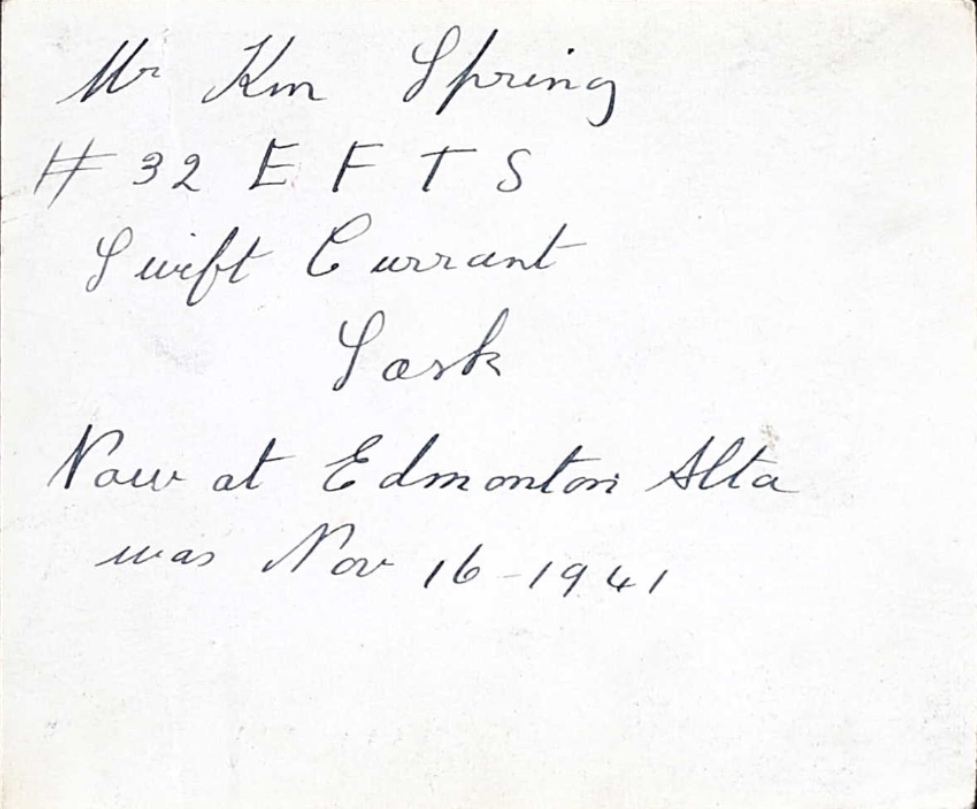 Mr Km Spring
# 32 E F T S
Swift Currant
Sask
Now at Edmonton Alta
was Nov 16-1941